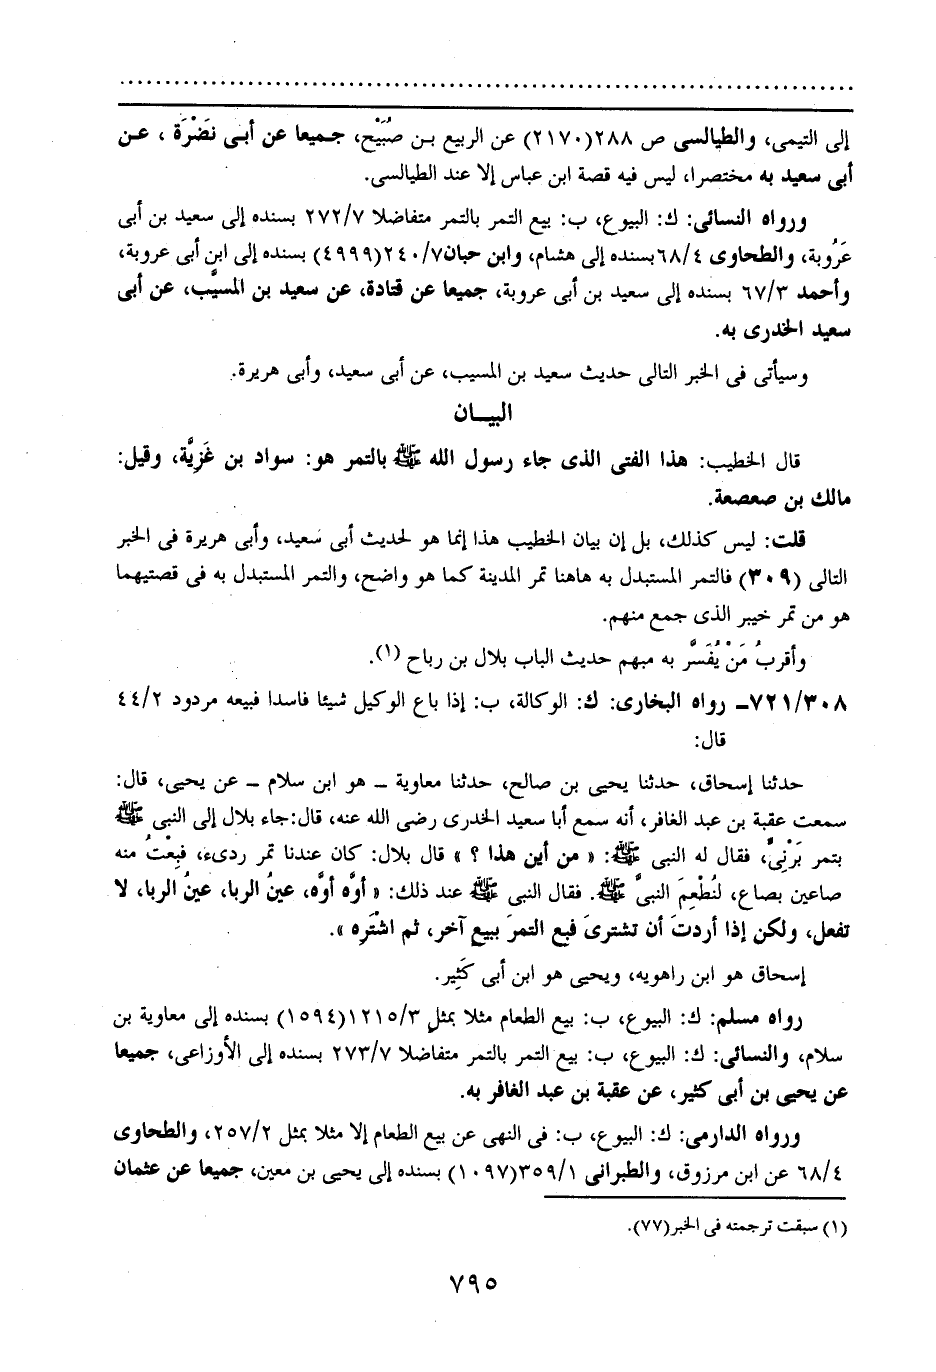 إلى التيمى، والطيالسى ص ٢٨٨(٢١٧٠) عن الربيع بـن صُبَيْح، جـميعا عن أبى نَضْرَة ، عـن
أبى سعيد به مختصرا، ليس فيه قصة ابن عباس إلا عند الطيالسى.
ورواه النسائى: ك: البيوع، ب: بيع التمر بالتمر متفاضلا ٢٧٢/٧ بسنده إلى سعيد بن أبى
عَرُوبة، والطحاوى ٦٨/٤بسنده إلى هشام، وابن حبان٢٤٠/٧(٤٩٩٩) بسنده إلى ابن أبى عروبة،
وأحمد ٦٧/٣ بسنده إلى سعيد بن أبى عروبة، جميعا عن قتادة، عن سعيد بن المسيَّب، عن أبى
سعيد الخدرى به.
وسيأتى فى الخبر التالى حديث سعيد بن المسيب، عن أبى سعيد، وأبى هريرة.
البيــان
قال الخطيب: هذا الفتى الذى جاء رسول الله ﷺ بالتمر هو: سواد بن غَزِيَّة، وقيل:
مالك بن صعصعة.
قلت: ليس كذلك، بل إن بيان الخطيب هذا إنما هو لحديث أبى سَعيد، وأبى هريرة فى الخبر
التالى (٣٠٩) فالتمر المستبدل به هاهنا تمر المدينة كما هو واضح، والتمر المستبدل به فى قصتيهما
هو من تمر خيبر الذى جمع منهم.
وأقربُ مَنْ يُفَسَّر به مبهم حديث الباب بلال بن رباح (١).
٧٢١/٣٠٨ـ رواه البخارى: ك: الوكالة، ب: إذا باع الوكيل شيئا فاسدا فبيعه مردود ٤٤/٢
قال:
حدثنا إسحاق، حدثنا يحيى بن صالح، حدثنا معاوية ـ هو ابن سلام ـ عن يحيى، قال:
سمعت عقبة بن عبد الغافر، أنه سمع أبا سعيد الخدرى رضى الله عنه، قال:جاء بلال إلى النبى ﷺ
بتمر بَرْنِىٍّ، فقال له النبى ﷺ: « من أين هذا ؟ » قال بلال: كان عندنا تمر ردىء، فبِعْتُ منه
صاعين بصاع، لنُطْعِمَ النبىَّ ﷺ. فقال النبى ﷺ عند ذلك: « أوَّه أوَّه، عينُ الربا، عينُ الربا، لا
تفعل، ولكن إذا أردتَ أن تشترىَ فبع التمرَ ببيع آخر، ثم اشْتَرِه ».
إسحاق هو ابن راهويه، ويحيى هو ابن أبى كَثِير.
رواه مسلم: ك: البيوع، ب: بيع الطعام مثلا بمثلٍ ١٢١٥/٣(١٥٩٤) بسنده إلى معاوية بن
سلام، والنسائى: ك: البيوع، ب: بيع التمر بالتمر متفاضلا ٢٧٣/٧ بسنده إلى الأوزاعى، جميعا
عن يحيى بن أبى كثير، عن عقبة بن عبد الغافر به.
ورواه الدارمى: ك: البيوع، ب: فى النهى عن بيع الطعام إلا مثلا بمثل ٢٥٧/٢، والطحاوى
٦٨/٤ عن ابن مرزوق، والطبرانى ٣٥٩/١(١٠٩٧) بسنده إلى يحيى بن معين، جميعا عن عثمان
(١) سبقت ترجمته فى الخبر(٧٧).
٧٩٥